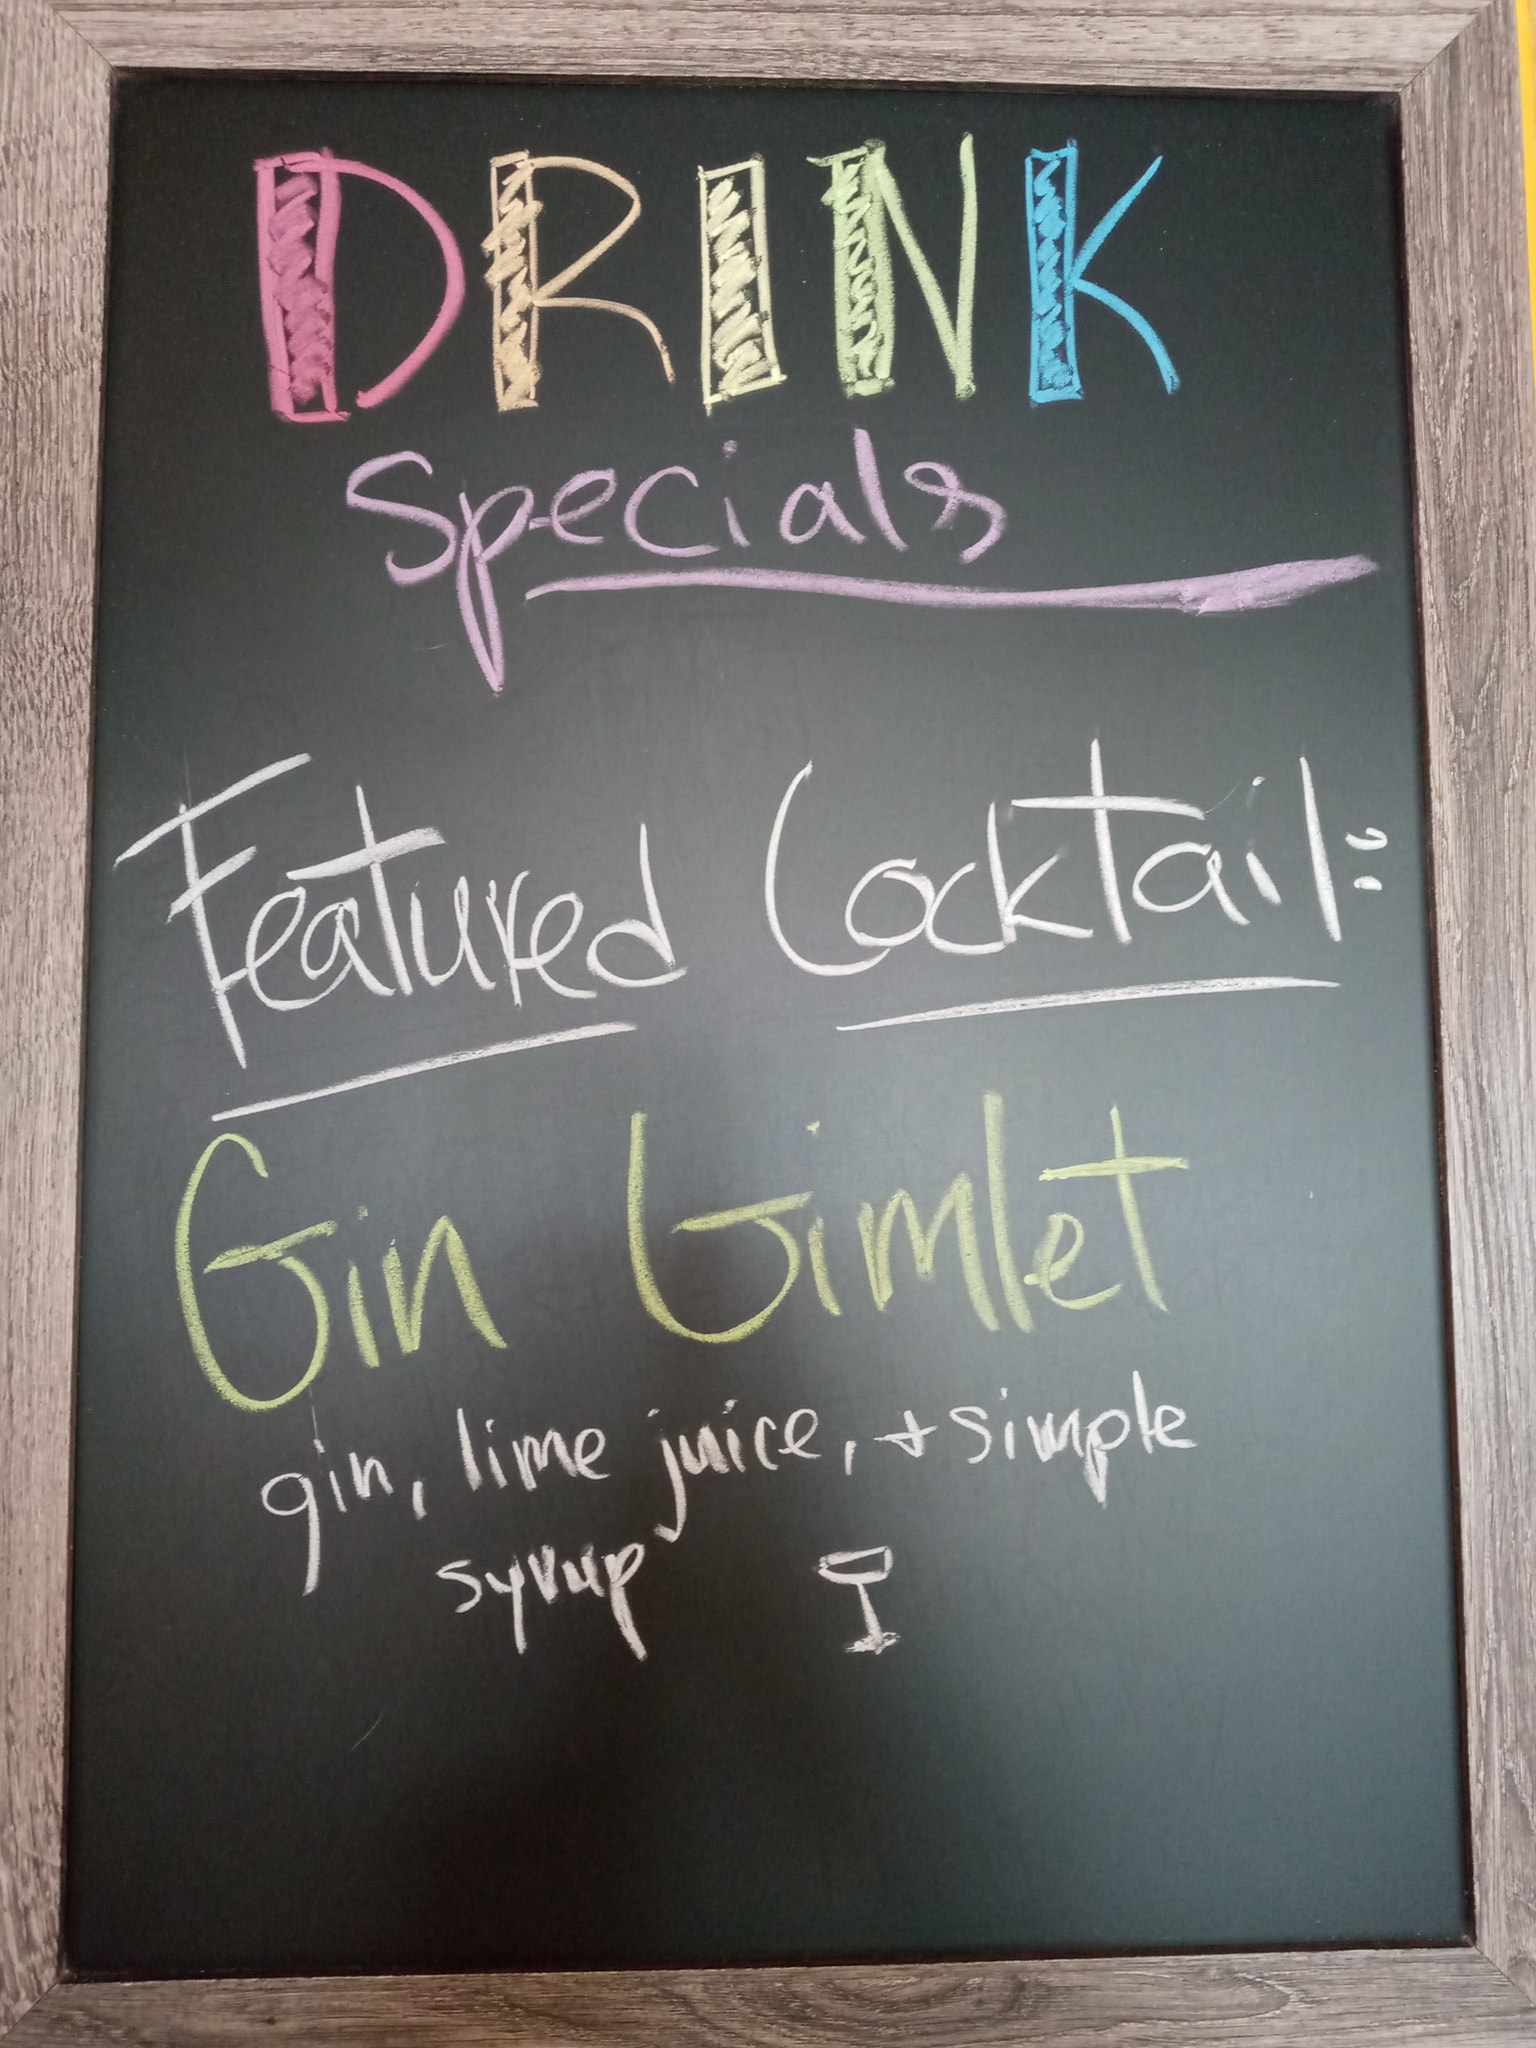 DRINK
Specials
Featured Cocktail:
Gin Gimlet
gin, lime juice, + simple
syrup